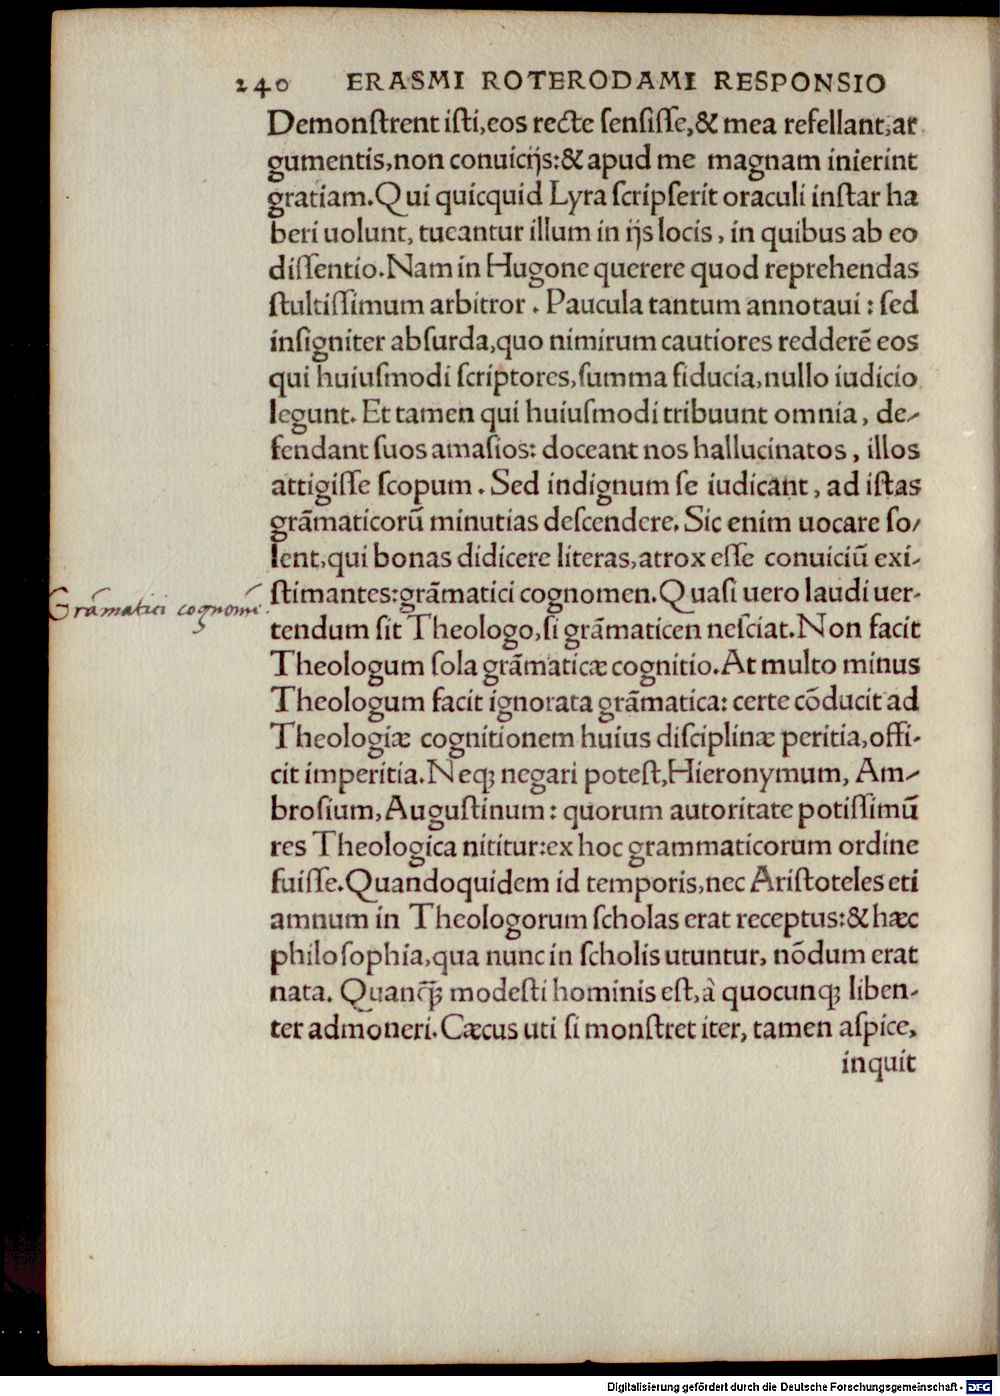 240 ERASMI ROTERODAMI RESPONSIO
Demonſtrent iſti, eos recte ſenſiſſe, & mea refellant, ar
gumentis, non conuicijs: & apud me magnam inierint
gratiam. Qui quicquid Lyra ſcripſerit oraculi inſtar ha
beri uolunt, tueantur illum in ijs locis, in quibus ab eo
diſſentio. Nam in Hugone querere quod reprehendas
ſtultiſſimum arbitror. Paucula tantum annotaui: ſed
inſigniter abſurda, quo nimirum cautiores redderẽ eos
qui huiuſmodi ſcriptores, ſumma fiducia, nullo iudicio
legunt. Et tamen qui huiuſmodi tribuunt omnia, de-
fendant ſuos amaſios: doceant nos hallucinatos, illos
attigiſſe ſcopum. Sed indignum ſe iudicant, ad iſtas
grãmaticorũ minutias deſcendere. Sic enim uocare ſo/
lent, qui bonas didicere literas, atrox eſſe conuiciũ exi-
Grãmatici cognomẽ.
ſtimantes: grãmatici cognomen. Quaſi uero laudi uer-
tendum ſit Theologo, ſi grãmaticen neſciat. Non facit
Theologum ſola grãmaticæ cognitio. At multo minus
Theologum facit ignorata grãmatica: certe cõducit ad
Theologiæ cognitionem huius diſciplinæ peritia, offi-
cit imperitia. Neqꝫ negari poteſt, Hieronymum, Am-
broſium, Auguſtinum: quorum autoritate potiſſimũ
res Theologica nititur: ex hoc grammaticorum ordine
fuiſſe. Quandoquidem id temporis, nec Ariſtoteles eti
amnum in Theologorum ſcholas erat receptus: & hæc
philoſophia, qua nunc in ſcholis utuntur, nõdum erat
nata. Quancq̃ꝫ modeſti hominis eſt, à quocunqꝫ liben-
ter admoneri. Cæcus uti ſi monſtret iter, tamen aſpice,
inquit
Digitalisierung gefördert durch die Deutsche Forschungsgemeinschaft - DFG